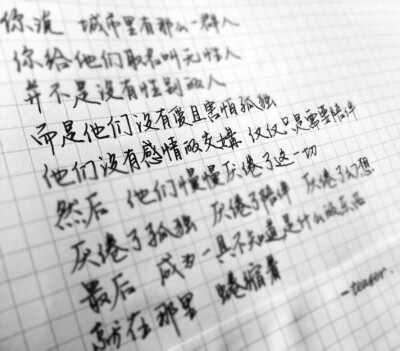 你说 城市里有那么一群人
你给他们取名叫无性人
并不是没有性别的人
而是他们没有爱且害怕孤独
他们没有感情的交媾 仅仅只是需要陪伴
然后 他们慢慢厌倦了这一切
厌倦了孤独 厌倦了陪伴 厌倦了幻想
最后 成为一具不知道是什么的东西
躺在那里 蜷缩着